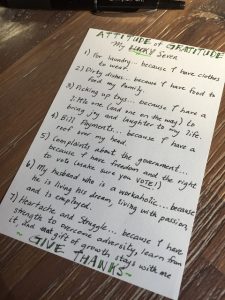 ATTITUDE of GRATITUDE
My LUCKY Seven
1) For laundry... because I have clothes
to wear.
2) Dirty dishes... because I have food to
feed my family.
3) Picking up toys... because I have a
little one (and one on the way) to
bring joy and laughter to my life.
4) Bill Payments... because I have a
roof over my head.
5) Complaints about the government...
because I have freedom and the right
to vote (make sure you VOTE!)
6) My husband who is a workaholic... because
he is living his dream, living with passion,
and is employed.
7) Heartache and Struggle... because I have
strength to overcome adversity, learn from
it, and gift of growth stay with me
~ GIVE THANKS ~